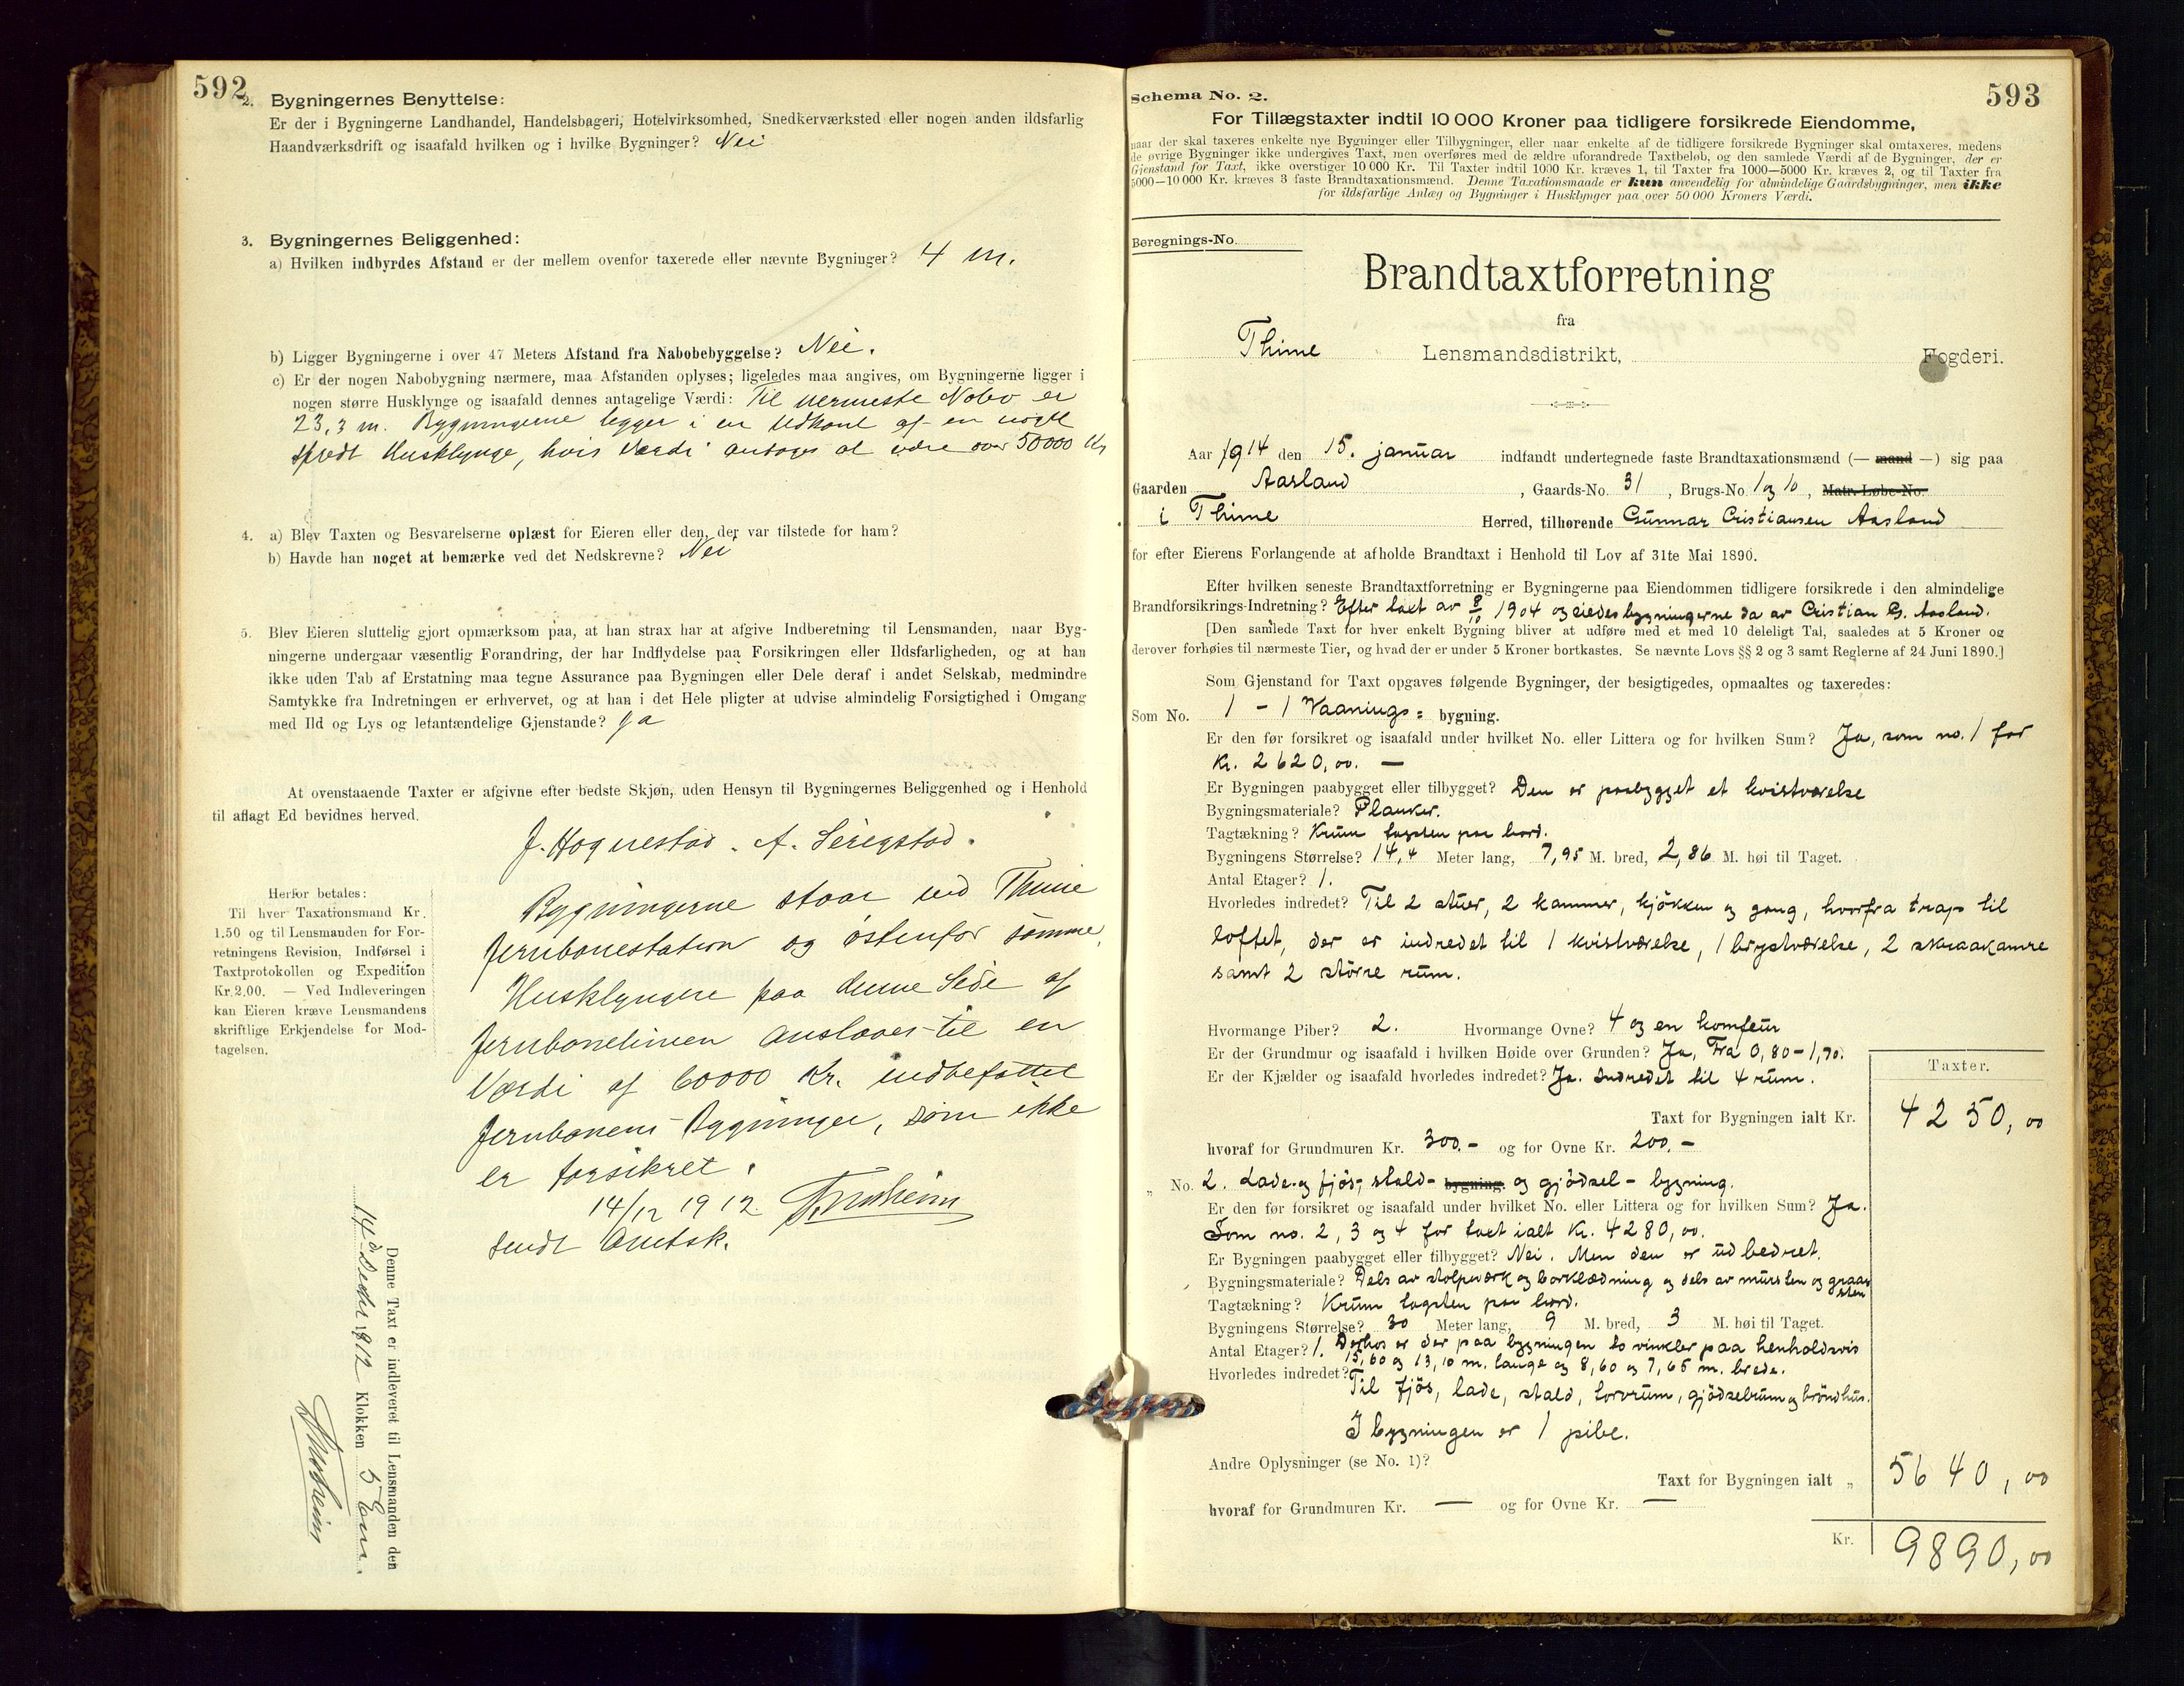 592
2. Bygningernes Benyttelse:
Er der i Bygningerne Landhandel, Handelsbageri, Hotelvirksomhed, Snedkerværksted eller nogen anden ildsfarlig
Haandværksdrift og isaafald hvilken og i hvilke Bygninger? Nei
3. Bygningernes Beliggenhed:
a) Hvilken indbyrdes Afstand er der mellem ovenfor taxerede eller nævnte Bygninger? 4 m.
b) Ligger Bygningerne i over 47 Meters Afstand fra Nabobebyggelse? Nei.
c) Er der nogen Nabobygning nærmere, maa Afstanden oplyses; ligeledes maa angives, om Bygningerne ligger i
nogen større Husklynge og isaafald dennes antagelige Værdi: Til nermeste Nabo er
23,3 m. Bygningerne legger i en Udkant af en noget
spredt Husklynge, hvis Værdi antages at være over 50000 Kr
4. a) Blev Taxten og Besvarelserne oplæst for Eieren eller den, der var tilstede for ham?
b) Havde han noget at bemærke ved det Nedskrevne? Nei
5. Blev Eieren sluttelig gjort opmærksom paa, at han strax har at afgive Indberetning til Lensmanden, naar Byg-
ningerne undergaar væsentlig Forandring, der har Indflydelse paa Forsikringen eller Ildsfarligheden, og at han
ikke uden Tab af Erstatning maa tegne Assurance paa Bygningen eller Dele deraf i andet Selskab, medmindre
Samtykke fra Indretningen er erhvervet, og at han i det Hele pligter at udvise almindelig Forsigtighed i Omgang
med Ild og Lys og letantændelige Gjenstande? ja
At ovenstaaende Taxter er afgivne efter bedste Skjøn, uden Hensyn til Bygningernes Beliggenhed og i Henhold
til aflagt Ed bevidnes herved.
J. Hognestad. A. Serigstad.
Herfor betales:
Til hver Taxationsmand Kr.
1.50 og til Lensmanden for For-
retningens Revision, Indførsel i
Taxtprotokollen og Expedition
Kr. 2.00. — Ved Indleveringen
kan Eieren kræve Lensmandens
skriftlige Erkjendelse for Mod-
tagelsen.
Bygningerne staar ved Thime
Jernbanestation og østenfor samme.
Husklyngen paa denne Side af
Jernbanelinien anslaaes til en
Værdi af 60000 Kr. indbefattet
Jernbanens Bygninger, som ikke
er forsikret.
14/12 1912.
sendt Amtsk.
Denne Taxt er indleveret til Lensmanden den
14d Decbr 1912 Klokken 5 Em.
593
Schema No. 2.
For Tillægstaxter indtil 10 000 Kroner paa tidligere forsikrede Eiendomme,
naar der skal taxeres enkelte nye Bygninger eller Tilbygninger, eller naar enkelte af de tidligere forsikrede Bygninger skal omtaxeres, medens
de øvrige Bygninger ikke undergives Taxt, men overføres med de ældre uforandrede Taxtbeløb, og den samlede Værdi af de Bygninger, der er
Gjenstand for Taxt, ikke overstiger 10 000 Kr. Til Taxter indtil 1000 Kr. kræves 1, til Taxter fra 1000—5000 Kr. kræves 2, og til Taxter fra
5000—10 000 Kr. kræves 3 faste Brandtaxationsmænd. Denne Taxationsmaade er kun anvendelig for almindelige Gaardsbygninger, men ikke
for ildsfarlige Anlæg og Bygninger i Husklynger paa over 50 000 Kroners Værdi.
Beregnings-No.
Brandtaxtforretning
fra
Thime Lensmandsdistrikt, Fogderi.
Aar 1914 den 15. januar indfandt undertegnede faste Brandtaxationsmænd (— mand —) sig paa
Gaarden Aasland, Gaards-No. 31, Brugs-No. 1 og 10, Matr. Løbe-No.
i Thime Herred, tilhørende Gunnar Cristiansen Aasland
for efter Eierens Forlangende at afholde Brandtaxt i Henhold til Lov af 31te Mai 1890.
Efter hvilken seneste Brandtaxtforretning er Bygningerne paa Eiendommen tidligere forsikrede i den almindelige
Brandforsikrings-Indretning? Efter taxt av 8/10 1904 og eiedes bygningerne da av Cristian G. Aasland.
[Den samlede Taxt for hver enkelt Bygning bliver at udføre med et med 10 deleligt Tal, saaledes at 5 Kroner og
derover forhøies til nærmeste Tier, og hvad der er under 5 Kroner bortkastes. Se nævnte Lovs §§ 2 og 3 samt Reglerne af 24 Juni 1890.]
Som Gjenstand for Taxt opgaves følgende Bygninger, der besigtigedes, opmaaltes og taxeredes:
Som No. 1 - 1 Vaanings= bygning.
Er den før forsikret og isaafald under hvilket No. eller Littera og for hvilken Sum? Ja, som no. 1 for
kr. 2620,00. —
Er Bygningen paabygget eller tilbygget? Den er paabygget et kvistværelse
Bygningsmateriale? Planker.
Tagtækning? Krum tagsten paa bord.
Bygningens Størrelse? 14,4 Meter lang, 7,95 M. bred, 2,86 M. høi til Taget.
Antal Etager? 1.
Hvorledes indredet? Til 2 stuer, 2 kammer, kjøkken og gang, hvorfra trap til
loftet, der er indredet til 1 kvistværelse, 1 brystværelse, 2 skraakamre
samt 2 större rum.
Hvormange Piber? 2. Hvormange Ovne? 4 og en komfeur
Er der Grundmur og isaafald i hvilken Høide over Grunden? Ja, Fra 0,80-1,70.
Er der Kjælder og isaafald hvorledes indredet? Ja. Indredet til 4 rum.
Taxter.
Taxt for Bygningen ialt Kr. 4250,00
hvoraf for Grundmuren Kr. 300.- og for Ovne Kr. 200.-
„ No. 2. Lade- og fjös-, stald- bygning. og gjödsel- bygning.
Er den før forsikret og isaafald under hvilket No. eller Littera og for hvilken Sum? Ja.
Som no. 2, 3 og 4 for taxt ialt kr. 4280,00.
Er Bygningen paabygget eller tilbygget? Nei. Men den er udbedret.
Bygningsmateriale? Dels av stolpeværk og bordklædning og dels av mursten og graasten
Tagtækning? Krum tagsten paa bord.
Bygningens Størrelse? 30 Meter lang, 9 M. bred, 3 M. høi til Taget.
Antal Etager? 1. Derhos er der paa bygningen to vinkler paa henholdsvis
15,60 og 13,10 m. lange og 8,60 og 7,65 m. brede.
Hvorledes indredet? Til fjös, lade, stald, torvrum, gjödselrum og bröndhus.
I bygningen er 1 pibe.
Andre Oplysninger (se No. 1)?
Taxt for Bygningen ialt „ 5640,00
hvoraf for Grundmuren Kr. — og for Ovne Kr. —
Kr. 9890,00